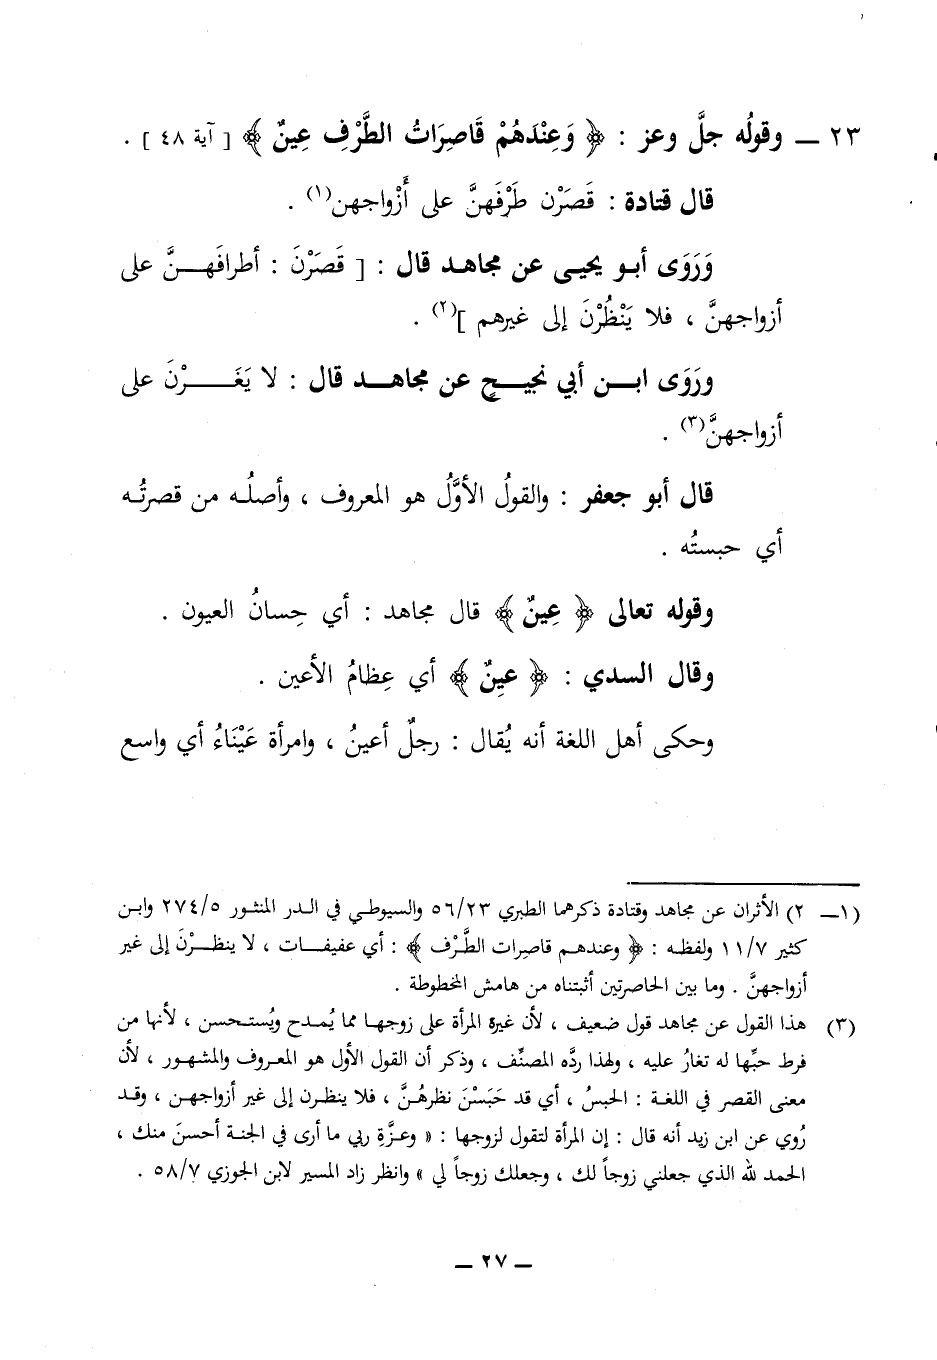 ٢٣ ــ وقولُه جلَّ وعز : ﴿ وَعِنْدَهُمْ قَاصِرَاتُ الطَّرْفِ عِينٌ ﴾ [ آية ٤٨ ] .
قال قتادة : قَصَرْن طَرْفَهنَّ على أَزْواجهن(١) .
وَرَوَى أبـو يحيـى عن مجاهـد قال : [ قَصَرْنَ : أطرافَهـنَّ على
أزواجهنَّ ، فلا يَنْظُرْنَ إلى غيرهم ](٢) .
ورَوَى ابـن أبي نجيـحٍ عن مجاهـد قال : لا يَغَـرْنَ على
أزواجهنَّ(٣) .
قال أبو جعفر : والقولُ الأوَّلُ هو المعروف ، وأصلُـه من قصرتُـه
أي حبستُه .
وقوله تعالى ﴿ عِينٌ ﴾ قال مجاهد : أي حِسانُ العيون .
وقال السدي : ﴿ عينٌ ﴾ أي عِظامُ الأعين .
وحكى أهل اللغة أنه يُقال : رجلٌ أعينُ ، وامرأة عَيْنَاءُ أي واسع
(١ــ ٢) الأثران عن مجاهد وقتادة ذكرهما الطبري ٥٦/٢٣ والسيوطـي في الـدر المنثـور ٢٧٤/٥ وابـن
كثير ١١/٧ ولفظـه : ﴿ وعندهـم قاصرات الطَّـرْف ﴾ : أي عفيفـات ، لا ينظـرْنَ إلى غير
أزواجهنَّ . وما بين الحاصرتين أثبتناه من هامش المخطوطة .
(٣) هذا القول عن مجاهد قول ضعيف ، لأن غيرة المرأة على زوجهـا مما يُمـدح ويُستـحسن ، لأنها من
فرط حبِّها له تغارُ عليه ، ولهذا ردَّه المصنِّف ، وذكر أن القول الأول هو المعروف والمشهور ، لأن
معنى القصر في اللغة : الحبسُ ، أي قد حَبَسْنَ نظرهُـنَّ ، فلا ينظـرن إلى غير أزواجهـن ، وقـد
رُوي عن ابن زيد أنه قال : إن المرأة لتقول لزوجها : « وعـزَّةِ ربي ما أرى في الجنة أحسنَ منك ،
الحمد لله الذي جعلني زوجاً لك ، وجعلك زوجاً لي » وانظر زاد المسير لابن الجوزي ٥٨/٧ .
ــ ٢٧ ــ